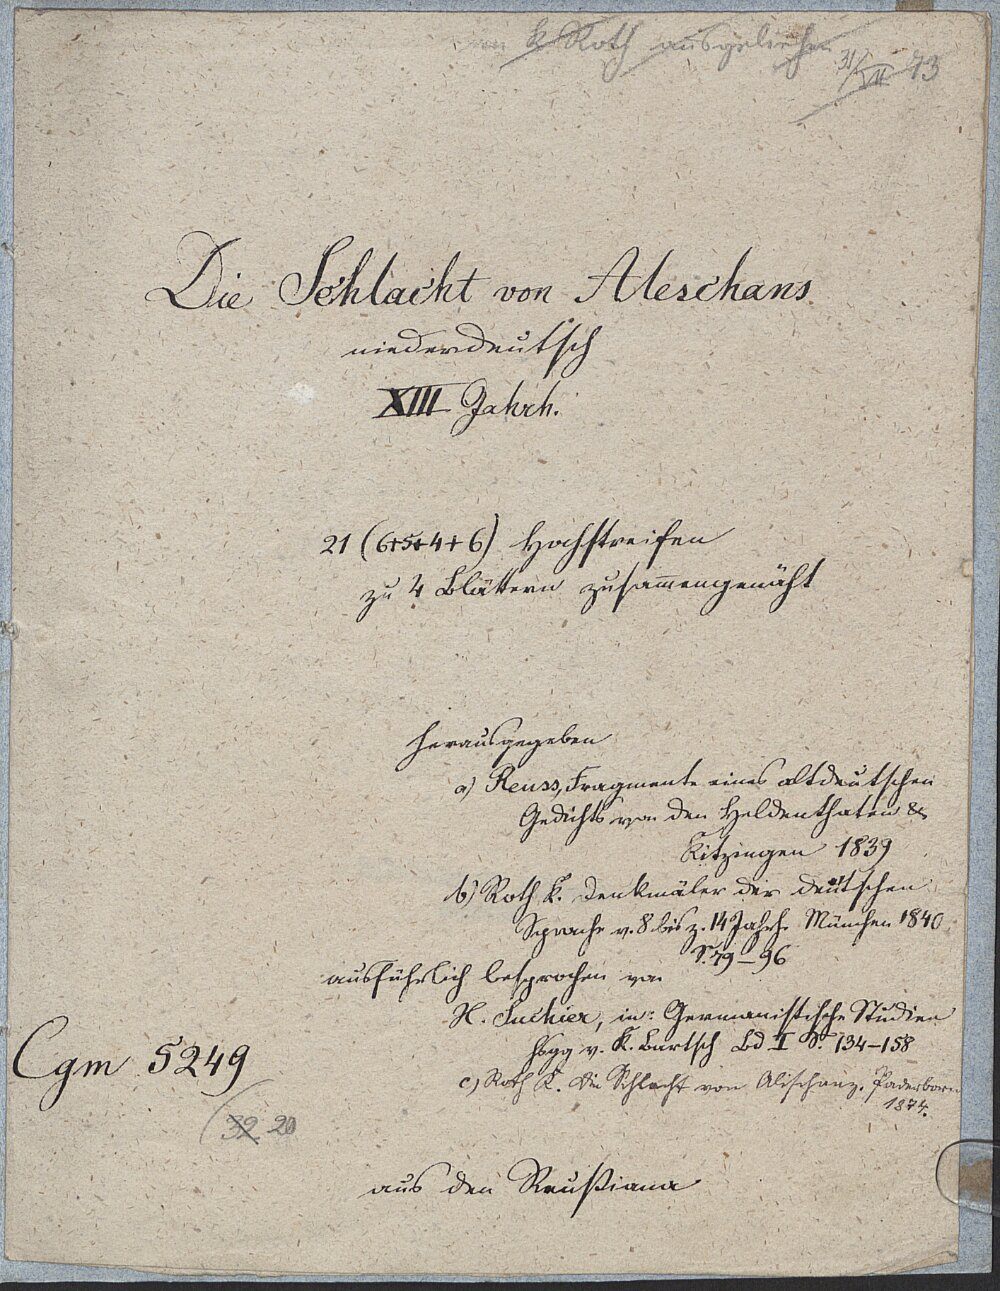 an K Roth ausgeliehen
31/VII 73
Die Schlacht von Aleschans
niederdeutsch
XIII Jahrh.
21 (6+5+4+6) Hochstreifen
zu 4 Blättern zusammengenäht
herausgegeben
a) Reuss, Fragmente eines altdeutschen
Gedichts von den Heldenthaten &
Kitzingen 1839
b) Roth K. Denkmäler der deutschen
Sprache v. 8 bis z. 14 Jahrh. München 1840
S. 79–96
ausführlich besprochen von
H. Suchier, in: Germanistische Studien
hsgg v. K. Bartsch Bd. I S. 134–158
c) Roth K. Die Schlacht von Alischanz. Paderborn
1874.
Cgm 5249
(32 20
aus den Reußiana